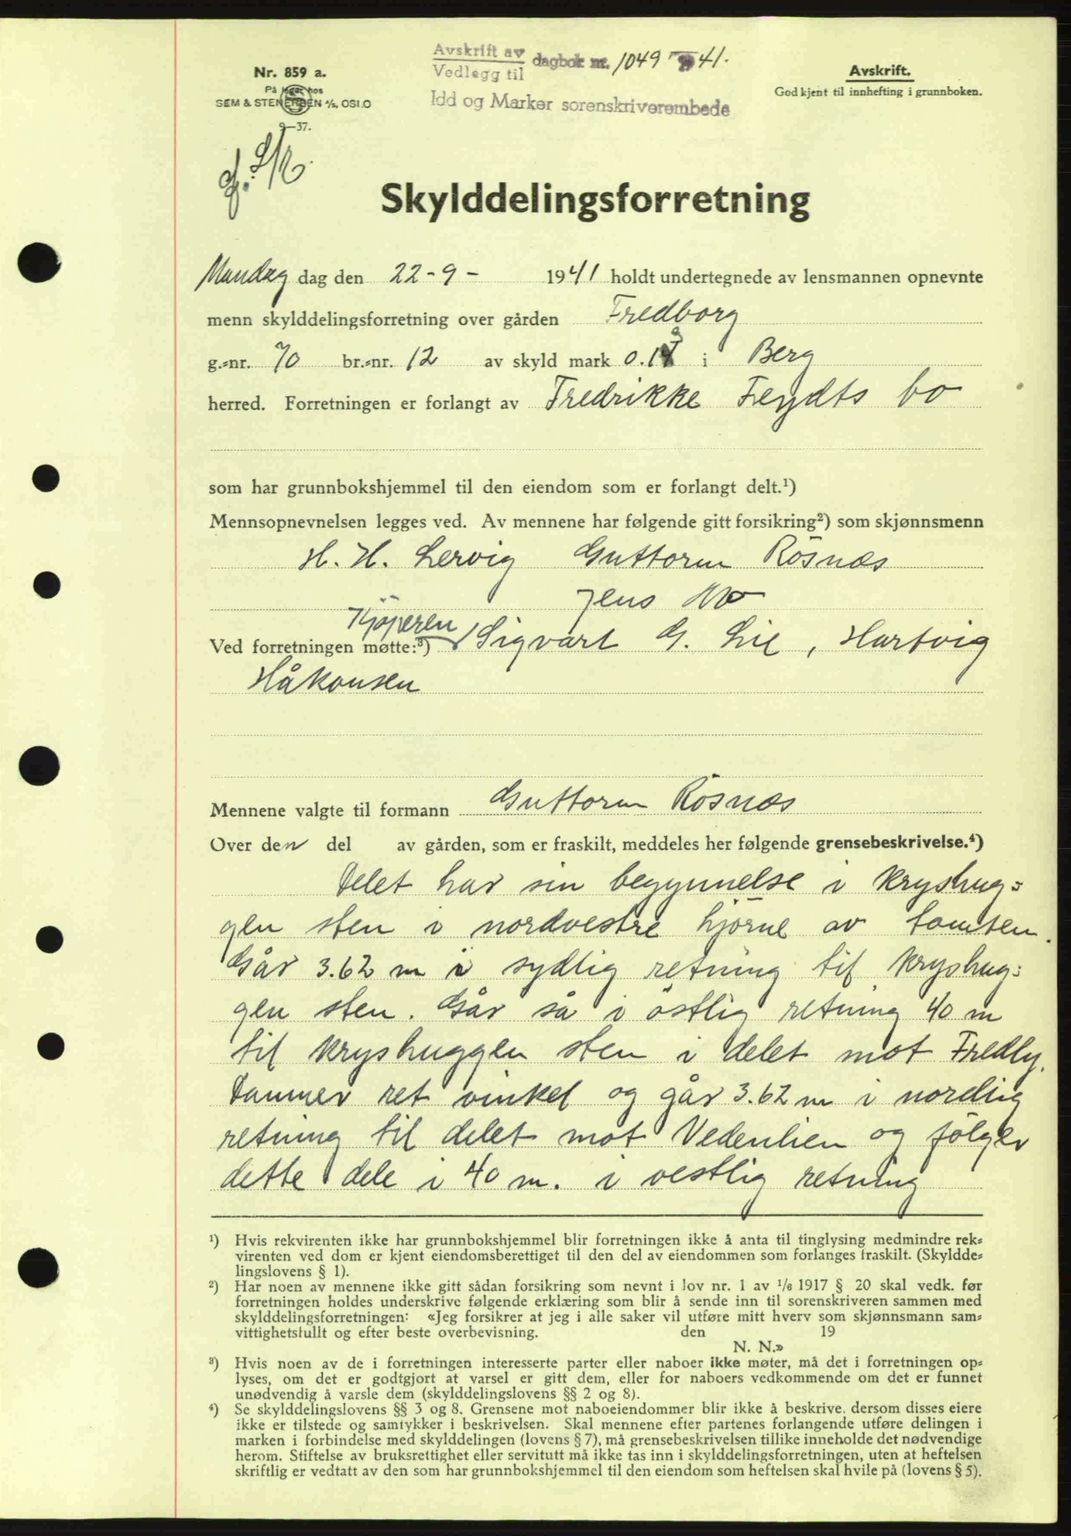 Nr. 859 a.
På lager hos
SEM & STENERSEN A/S, OSLO
9-37.
Avskrift av
Vedlegg til
dagbok nr. 1049 41.
Idd og Marker sorenskriverembede
Avskrift.
Godkjent til innhefting i grunnboken.
Skylddelingsforretning
Mandag dag den 22-9- 1941 holdt undertegnede av lensmannen opnevnte
menn skylddelingsforretning over gården Fredborg
g.-nr. 70 br.-nr. 12 av skyld mark 0.13 i Berg
herred. Forretningen er forlangt av Fredrikke Feydts bo
som har grunnbokshjemmel til den eiendom som er forlangt delt.¹)
Mennsopnevnelsen legges ved. Av mennene har følgende gitt forsikring²) som skjønnsmenn
H. H. Lervig Guttorm Rösnæs
Jens Mo
Kjøperen
Ved forretningen møtte:³) Sigvart G. Lie, Hartvig
Håkonsen
Mennene valgte til formann Guttorm Rösnæs
Over den del av gården, som er fraskilt, meddeles her følgende grensebeskrivelse.⁴)
Delet har sin begynnelse i kryshug=
gen sten i nordvestre hjörne av tomten.
Går 3.62 m i sydlig retning til kryshug=
gen sten. Går så i östlig retning 40 m
til kryshuggen sten i delet mot Fredly.
Danner ret vinkel og går 3.62 m i nordlig
retning til delet mot Vedenlien og fölger
dette dele i 40 m. i vestlig retning
¹) Hvis rekvirenten ikke har grunnbokshjemmel blir forretningen ikke å anta til tinglysing medmindre rek=
virenten ved dom er kjent eiendomsberettiget til den del av eiendommen som forlanges fraskilt. (Skyldde=
lingslovens § 1).
²) Har noen av mennene ikke gitt sådan forsikring som nevnt i lov nr. 1 av 1/6 1917 § 20 skal vedk. før
forretningen holdes underskrive følgende erklæring som blir å sende inn til sorenskriveren sammen med
skylddelingsforretningen: «Jeg forsikrer at jeg i alle saker vil utføre mitt hverv som skjønnsmann sam=
vittighetsfullt og efter beste overbevisning. den 19
N. N.»
³) Hvis noen av de i forretningen interesserte parter eller naboer ikke møter, må det i forretningen op=
lyses, om det er godtgjort at varsel er gitt dem, eller for naboers vedkommende om det er funnet
unødvendig å varsle dem (skylddelingslovens §§ 2 og 8).
⁴) Se skylddelingslovens §§ 3 og 8. Grensene mot naboeiendommer blir ikke å beskrive, dersom disses eiere
ikke er tilstede og samtykker i beskrivelsen. Skal mennene efter partenes forlangende utføre delingen i
marken i forbindelse med skylddelingen (lovens § 7), må grensebeskrivelsen tillike inneholde det nødvendige
herom. Stiftelse av bruksrettighet eller servitutt må ikke tas inn i skylddelingsforretningen, uten at heftelsen
skriftlig er vedtatt av den som har grunnbokshjemmel til den eiendom som heftelsen skal hvile på (lovens § 5).